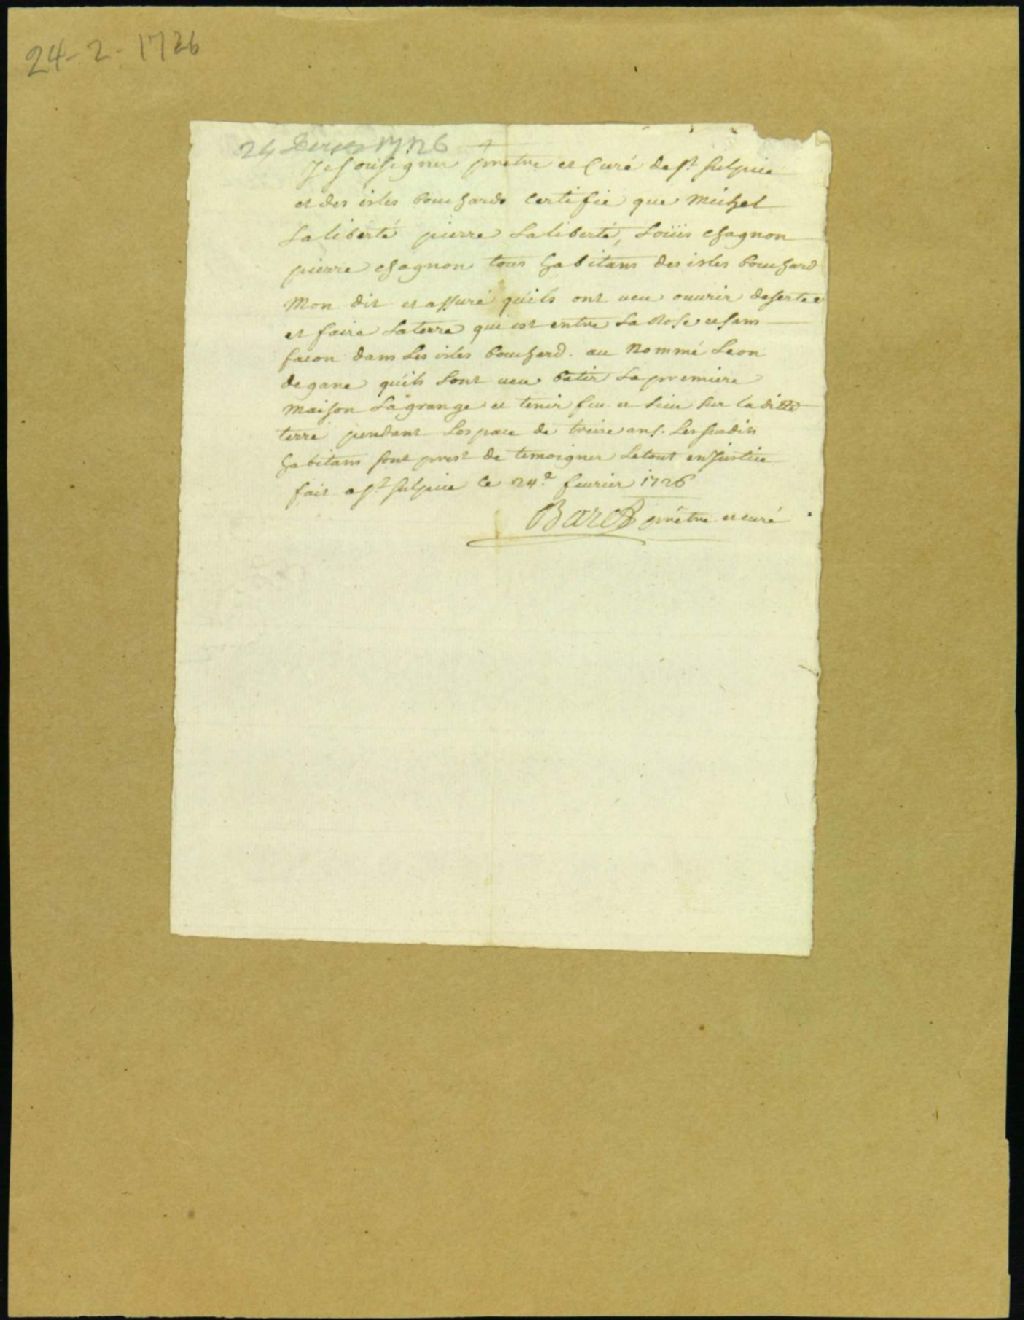 24-2-1726
24 1726
Je sousigner pretre et Curé de st sulpice
et des isles bouchards certifie que Michel
Laliberté pierre Laliberté, Loüis chagnon
pierre chagnon tous habitans des isles bouchard
Mon dit et assuré qu'ils ont veu ouvrir deserter
et faire La terre qui est entre La Rose et sans
facon dans Les isles bouchard. au Nommé Leon
degane qu'ils Lont veu batir La premiere
Maison La grange et tenir feu et Lieu sur la ditte
terre pendant Lespace de treize ans. Les
habitans sont prest de temoigner Le tout en Justice
fait a st sulpice Ce 24e fevrier 1726
prêtre et curé